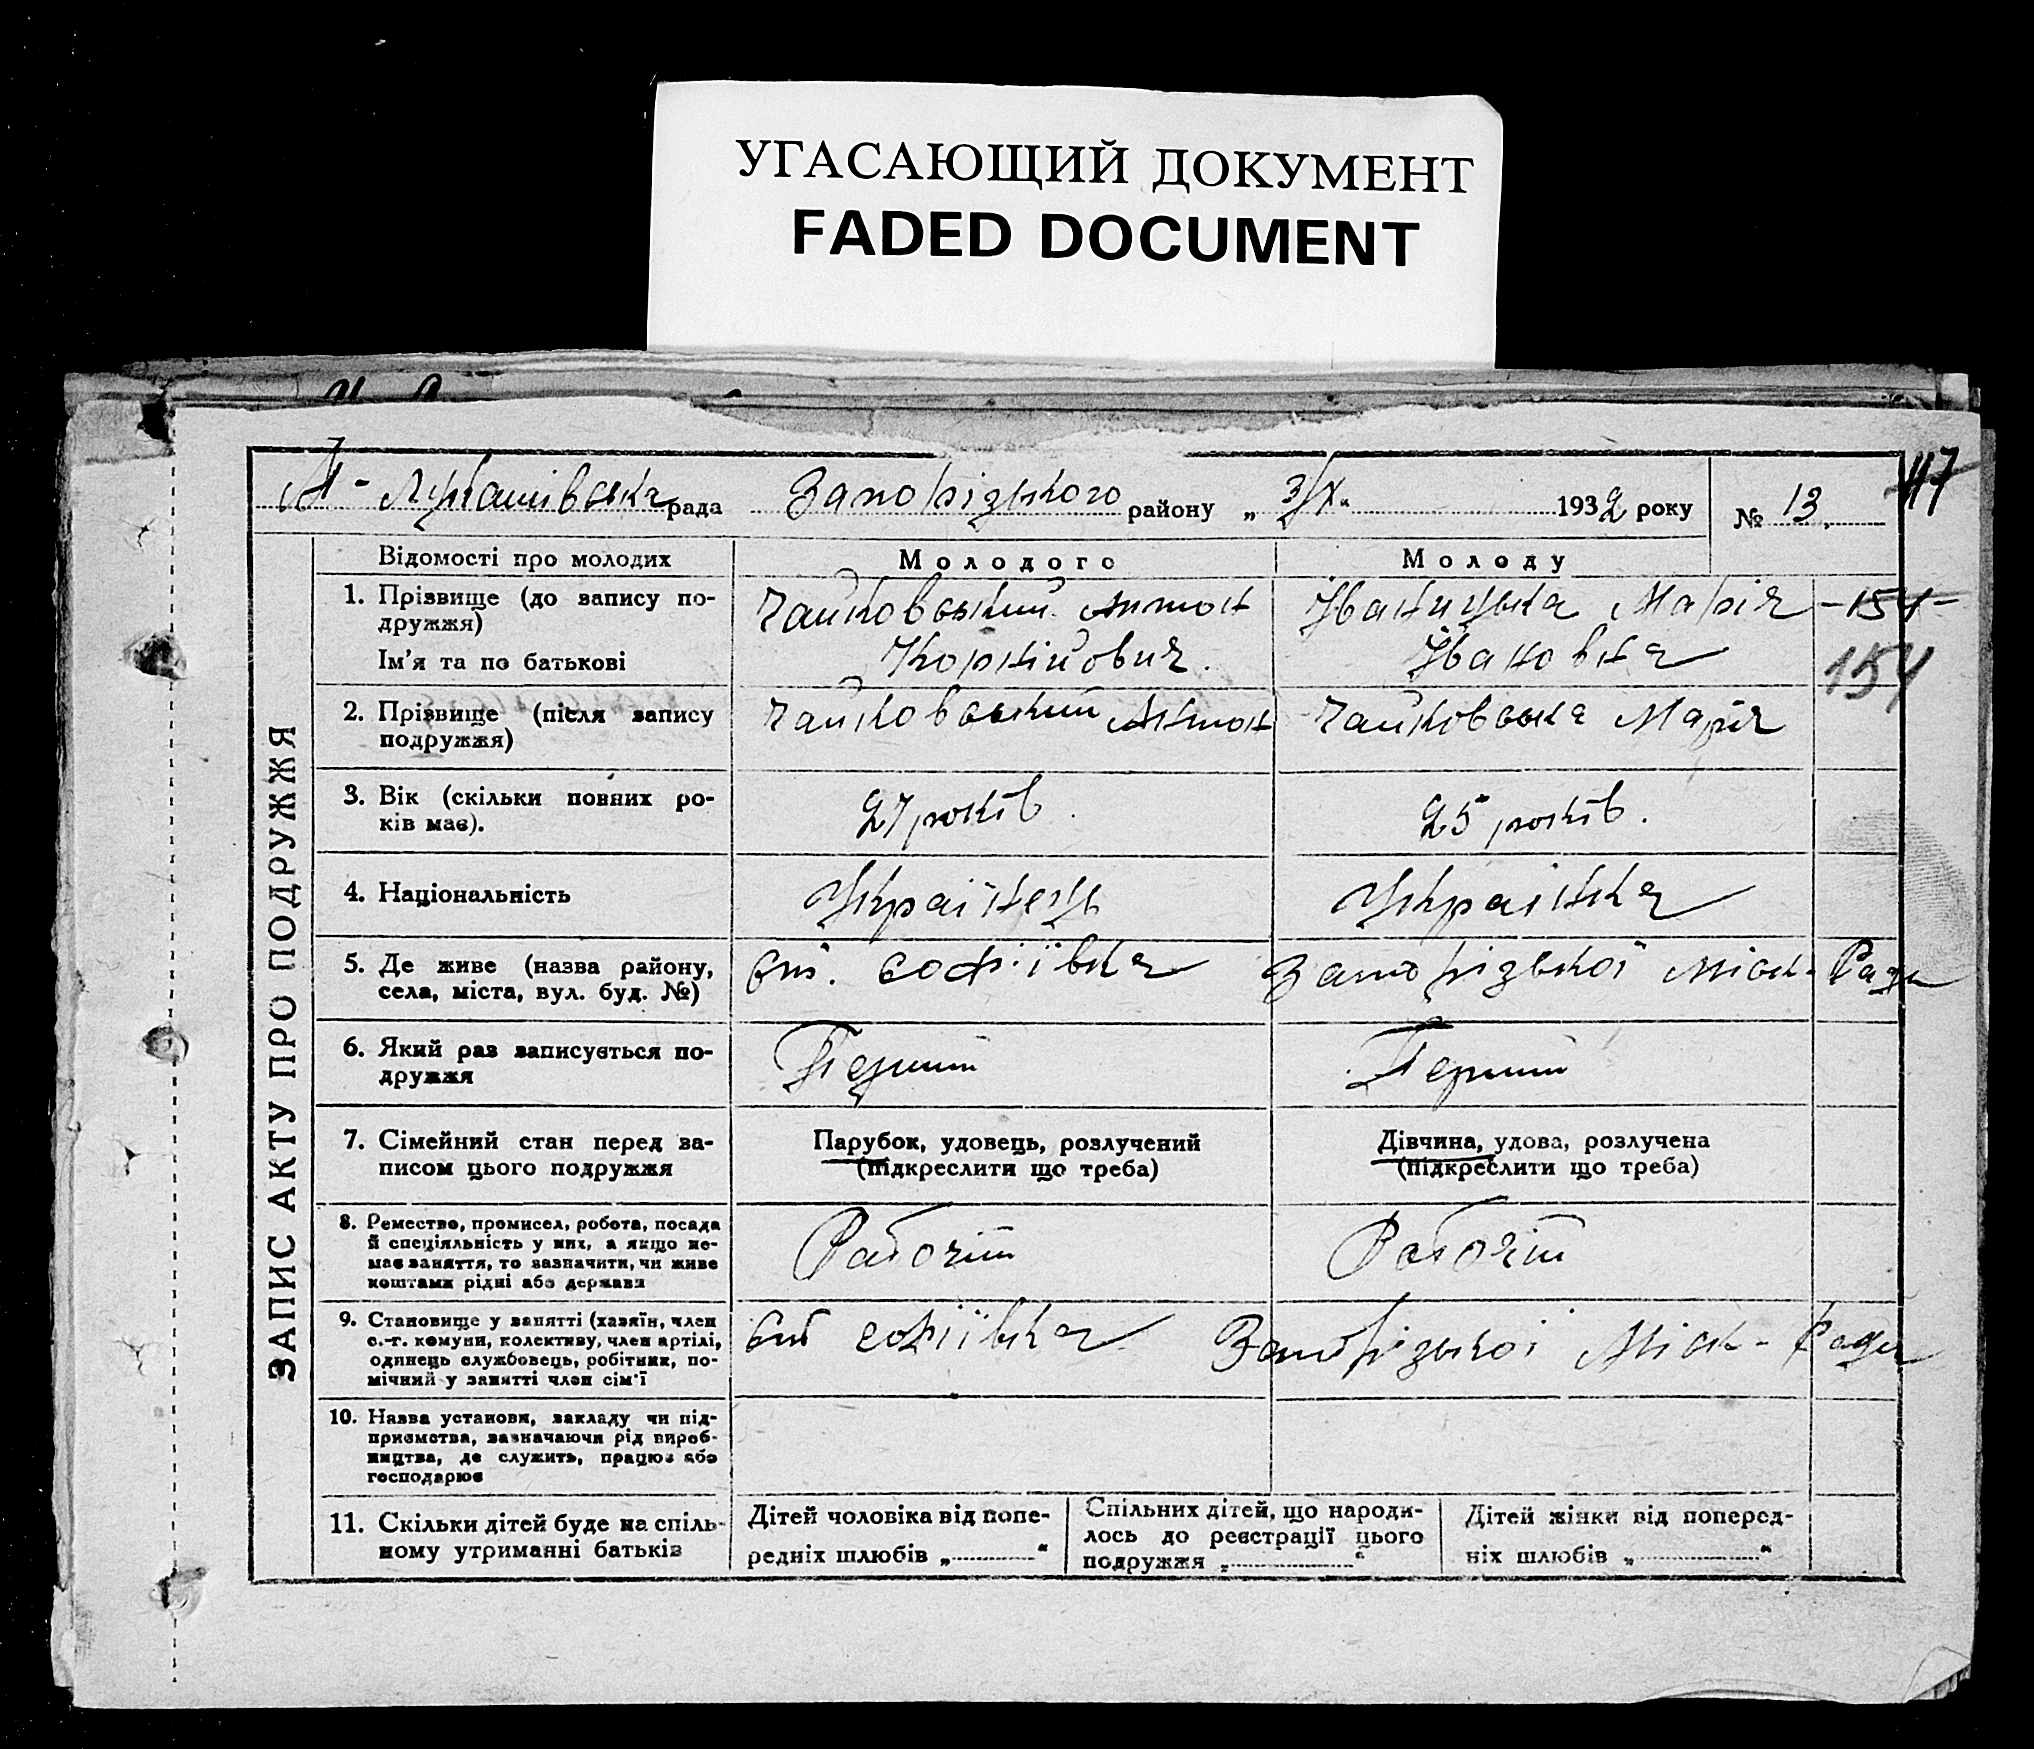 УГАСАЮЩИЙ ДОКУМЕНТ
FADED DOCUMENT
рада Запорізького району „ 3/X “ 1932 року № 13. 117
ЗАПИС АКТУ ПРО ПОДРУЖЖЯ
Відомості про молодих Молодого Молоду
1. Прізвище (до запису по-
дружжя)
Ім'я та по батькові
Чайковський Антон
Корнійович.
Іваницька Марія
Івановна
-154-
154
2. Прізвище (після запису
подружжя)
Чайковський Антон
Чайковська Марія
3. Вік (скільки повних ро-
ків має).
27 років.
25 років.
4. Національність
Українець
Українка
5. Де живе (назва району,
села, міста, вул. буд. №)
софіївка
Запорізької міск- Ради
6. Який раз записується по-
дружжя
Перший
Перший
7. Сімейний стан перед за-
писом цього подружжя
Парубок, удовець, розлучений
(підкреслити що треба)
Дівчина, удова, розлучена
(підкреслити що треба)
8. Ремество, промисел, робота, посада
й спеціяльність у них, а якщо не-
має заняття, то зазначити, чи живе
коштами рідні або держави
Робочій
Робочій
9. Становище у занятті (хазяїн, член
с.-г. комуни, колективу, член артілі,
одинець службовець, робітник, по-
мічний у занятті член сім'ї
софіївка
Запорізької Міск- Ради
10. Назва установи, закладу чи під-
приємства, зазначаючи рід вироб-
ництва, де служить, працює або
господарює
11. Скільки дітей буде на спіль-
ному утриманні батьків
Дітей чоловіка від попе-
редніх шлюбів „ “
Спільних дітей, що народи-
лось до реєстрації цього
подружжя „ “
Дітей жінки від поперед-
ніх шлюбів „ “